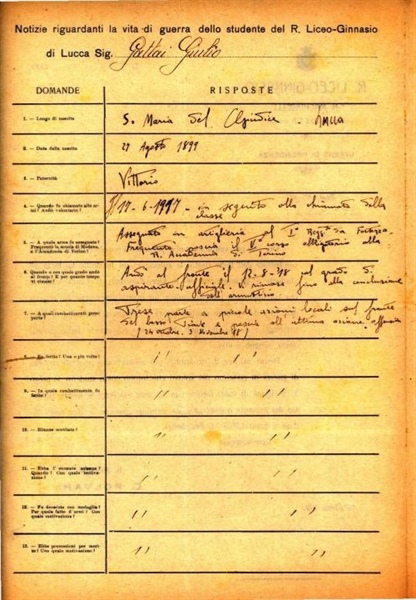 Notizie riguardanti la vita di guerra dello studente del R. Liceo-Ginnasio
di Lucca Sig. Gattai Giulio
DOMANDE RISPOSTE
1. — Luogo di nascita S. Maria del Giudice - Lucca
2. — Data della nascita 29 Agosto 1899
3. — Paternità Vittorio
4. — Quando fu chiamato alle armi? Andò volontario?
Il 17-6-1917 - in seguito alla chiamata della
classe
5. — A quale arma fu assegnato? Frequentò la scuola di Modena, o l'Accademia di Torino?
Assegnato in artiglieria al 1° Regg. da
Frequentò poscia il corso allievi alla
R. Accademia di Torino
6. — Quando e con quale grado andò al fronte? E per quanto tempo vi rimase?
Andò al fronte il 12-8-'18 col grado di
aspirante ufficiale. Vi rimase fino alla conclusione
dell'armistizio
7. — A quali combattimenti prese parte?
Prese parte a piccole azioni locali sul fronte
del basso Piave e poscia all'ultima azione offensiva
(24 ottobre - 3 Novembre 18)
8. — Fu ferito? Una o più volte? '' ''
9. — In quale combattimento fu ferito? '' ''
10. — Rimase mutilato? '' ''
11. — Ebbe l'encomio solenne? Quando? Con quale motivazione? '' ''
12. — Fu decorato con medaglia? Per quale fatto d'armi? Con quale motivazione? '' ''
13. — Ebbe promozioni per merito? Con quale motivazione? '' ''